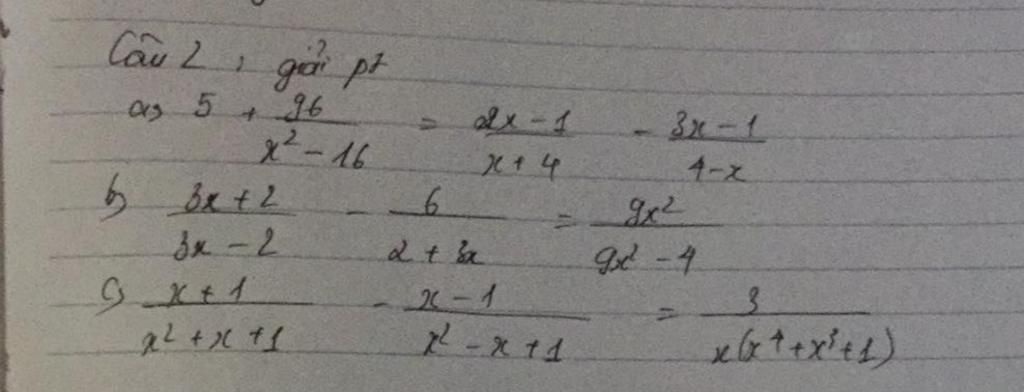 Câu 2, giải pt
a) 5 + 96/(x² - 16) = (2x - 1)/(x + 4) - (3x - 1)/(4 - x)
b) (3x + 2)/(3x - 2) - 6/(2 + 3x) = 9x²/(9x² - 4)
c) (x + 1)/(x² + x + 1) - (x - 1)/(x² - x + 1) = 3/(x(x⁴ + x³ + 1))